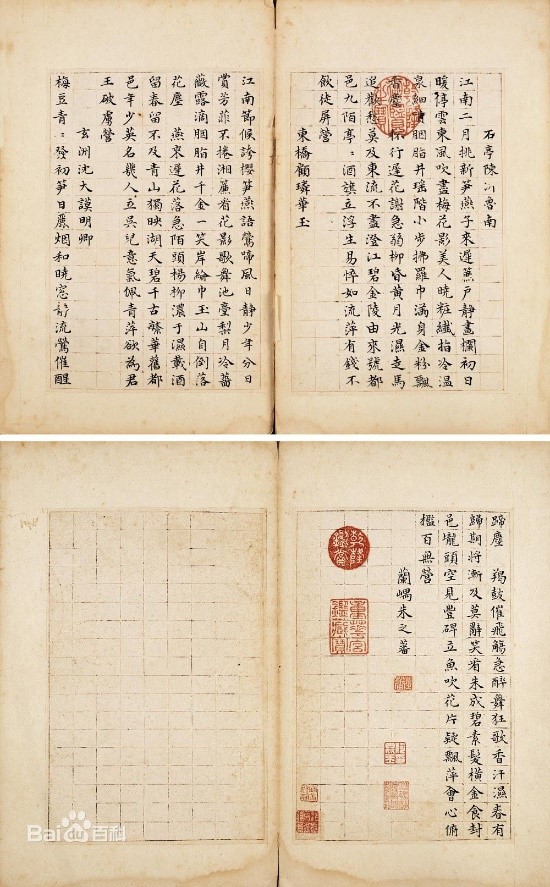 石亭陳沂魯南
江南二月挑新笋燕子來遲蕪戶靜畫欄初日
暖停雲東風吹盡梅花影美人曉粧纖指冷温
泉細漬胭脂井瑤階小步拂羅巾滿身金粉飄
香塵 行遲花謝急弱柳昏黃月光濕走馬
追歡愁莫及東流不盡澄江碧金陵由來號都
邑九陌亭〻酒旗立浮生易悴如流萍有錢不
飲徒屏營
東橋顧璘華玉
江南節候誇櫻笋燕語鶯啼風日靜少年分日
賞芳菲不捲湘簾看花影歌舞池臺梨月冷薔
薇露滴胭脂井千金一笑岸綸巾玉山自倒落
花塵 燕來遲花落急陌頭楊柳濃于濕載酒
留春留不及青山獨映湖天碧千古繁華舊都
邑年少英名幾人立吳紀意氣佩青萍欲為君
王破虜營
玄洲沈大謨明卿
梅豆青〻發初笋日麗烟和曉窓靜流鶯催醒
蹄塵 羯鼓催飛觴急醉舞狂歌香汗濕春有
歸期將漸及莫辭笑看朱成碧素髮橫金食封
邑壠頭空見豐碑立魚吹花片疑飄萍會心俯
檻百無營
蘭嵎朱之蕃
乾隆鑑賞
重華宮鑑藏寶
Bai du 百科